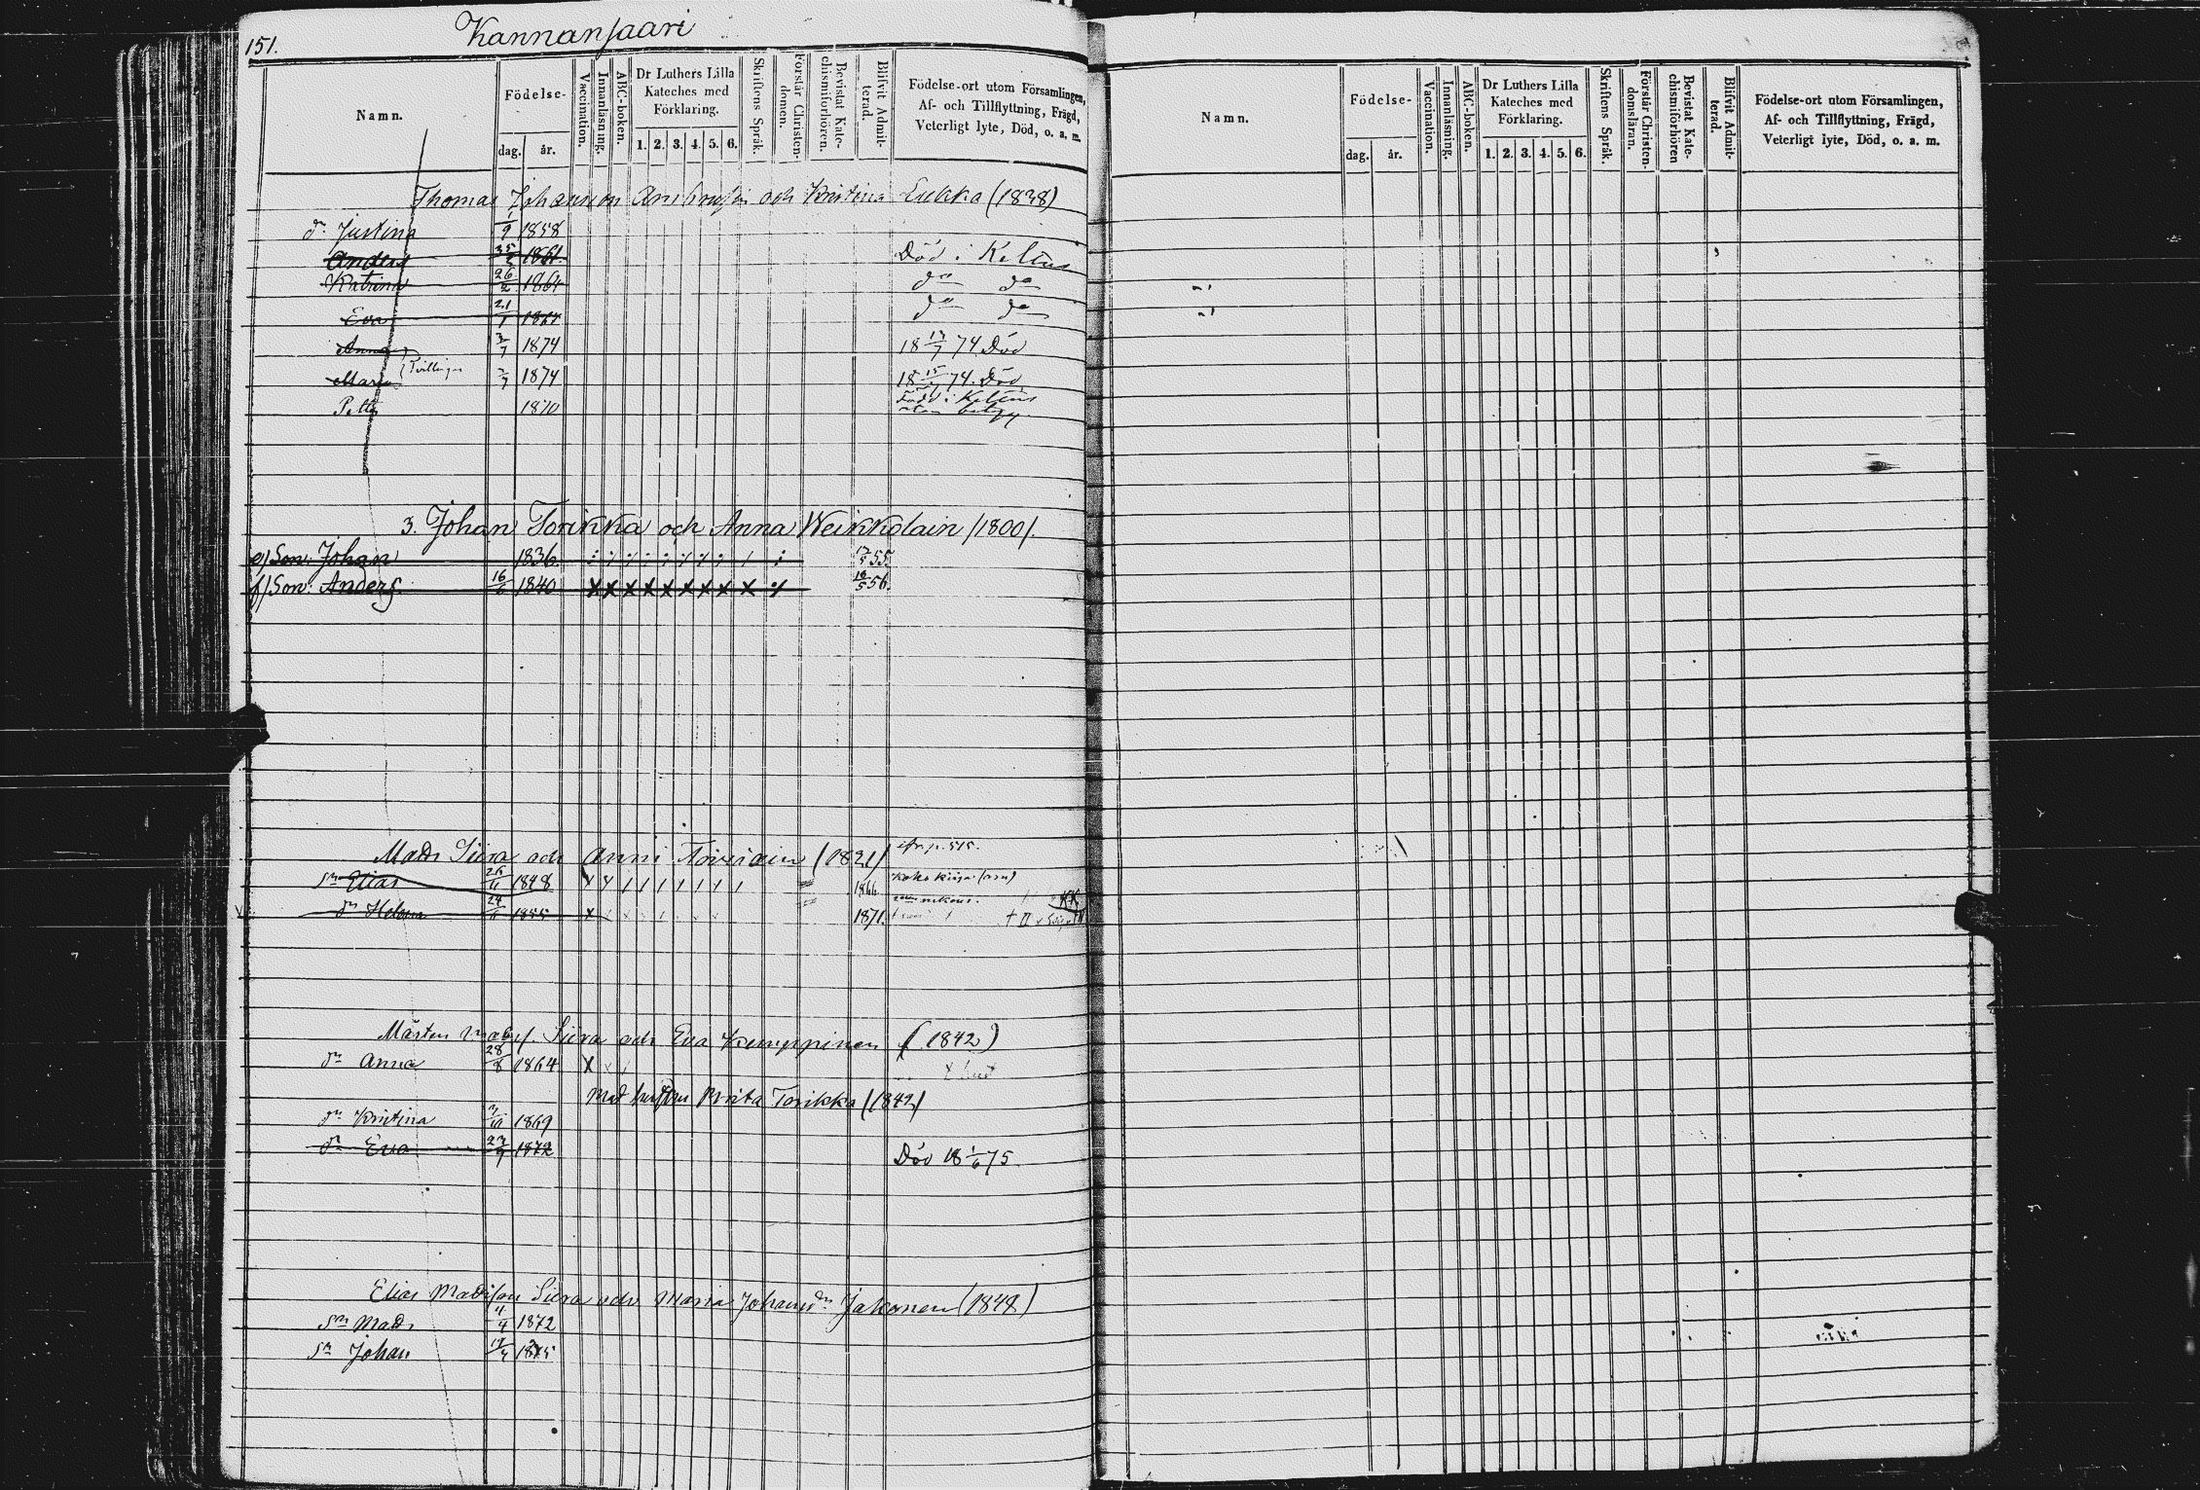 151.
Kannansaari
Namn.
Födelse-
dag. år.
Vaccination.
Innanläsning.
ABC-boken.
Dr Luthers Lilla Kateches med Förklaring.
1. 2. 3. 4. 5. 6.
Skriftens Språk.
Förstår Christendomen.
Bevistat Katechismiförhören.
Blifvit Admitterad.
Födelse-ort utom Församlingen,
Af- och Tillflyttning, Frägd,
Veterligt lyte, Död, o. a. m.
Thomas Johansson och Kristina Lukka (1838)
dr Justina 1/9 1858
Anders 1861 Död i Keltis
Katrina 26/2 1864 do do
Eva 21/1 1867 do do
Anna 3/7 1874 18 13/7 74 Död
Maria Tvillingar 3/7 1874 18 15/7 74. Död
Petter 1870 född i Keltis
utan betyg
3. Johan Torikka och Anna Weikkolain /1800/.
e) Son: Johan 1836 55.
f) Son: Anders. 16/6 1840 X X X X X X X X X 18/5 56.
Mads Siira och Anni Toiviain (1821) cfr. p. 515.
sn Elias 26/11 1848 1866
dr Helena 24/11 1855 X 1871.
Mårten Madsf. Siira och Eva Kemppinen (1842)
dr Anna 28/8 1864 X
Med hustrun Brita Torikka (1842)
dr Kristina 1869
dr Eva 23/9 1872 Död 18 1/6 75.
Elias Madsson Siira och Maria Johansdr Jakonen (1848)
sn Mads 4/4 1872
sn Johan 1875
Namn.
Födelse-
dag. år.
Vaccination.
Innanläsning.
ABC-boken.
Dr Luthers Lilla Kateches med Förklaring.
1. 2. 3. 4. 5. 6.
Skriftens Språk.
Förstår Christendomsläran.
Bevistat Katechismiförhören
Blifvit Admitterad.
Födelse-ort utom Församlingen,
Af- och Tillflyttning, Frägd,
Veterligt lyte, Död, o. a. m.